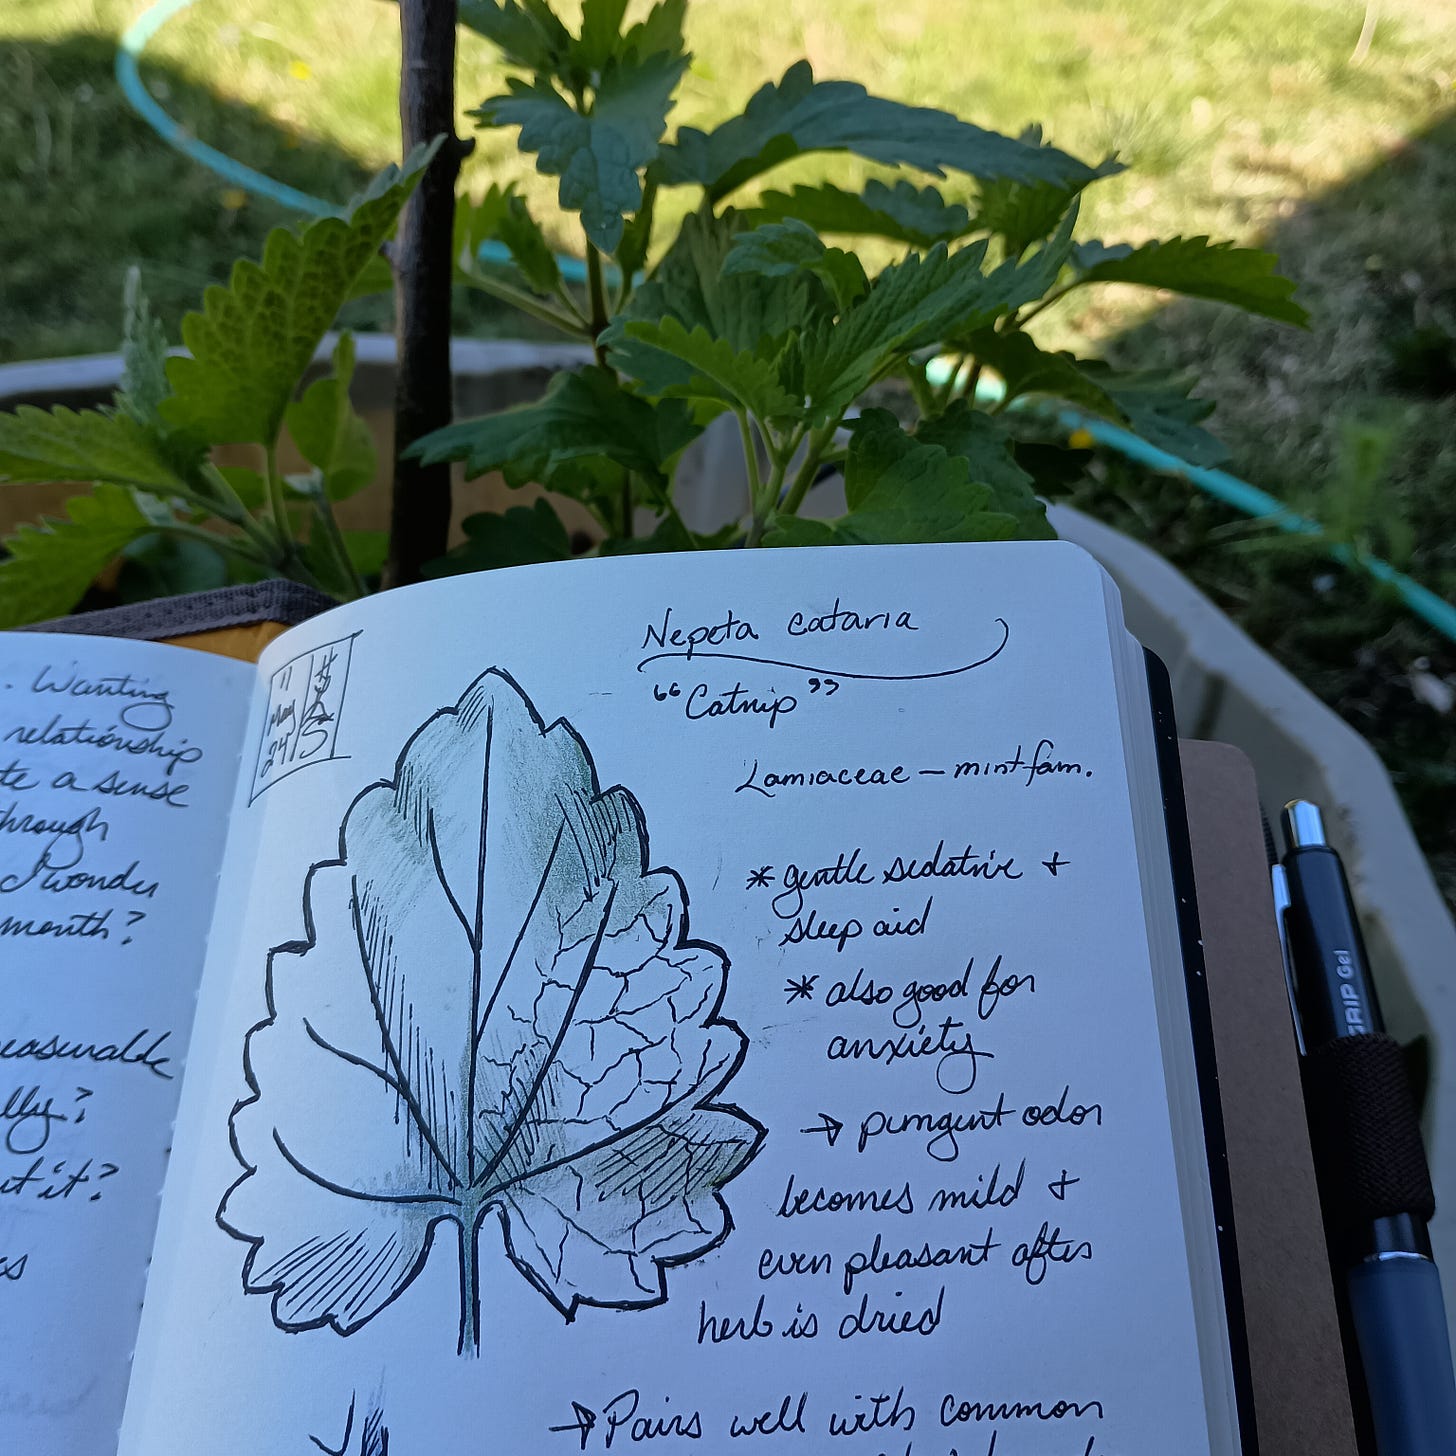 . Wanting
relationship
te a sense
through
I wonder
month?
easurable
lly?
ut it?
11
May
24
Nepeta cataria
"Catnip"
Lamiaceae – mint fam.
* gentle sedative &
sleep aid
* also good for
anxiety
→ pungent odor
becomes mild &
even pleasant after
herb is dried
→ Pairs well with common
GRIP Gel